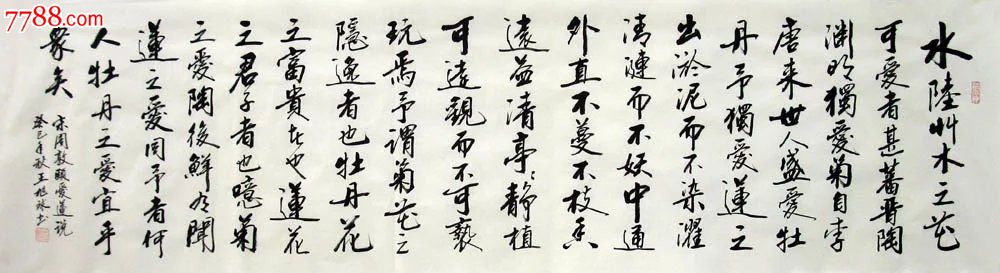 7788.com
水陸艸木之花
可愛者甚蕃晋陶
渊明獨愛菊自李
唐来世人盛愛牡
丹予獨愛蓮之
出淤泥而不染濯
清漣而不妖中通
外直不蔓不枝香
遠益清亭〻静植
可遠觀而不可褻
玩焉予謂菊花之
隱逸者也牡丹花
之富貴者也蓮花
之君子者也噫菊
之愛陶後鮮有聞
蓮之愛同予者何
人牡丹之愛宜乎
衆矣
宋周敦頤愛蓮説
癸巳年秋王旭书